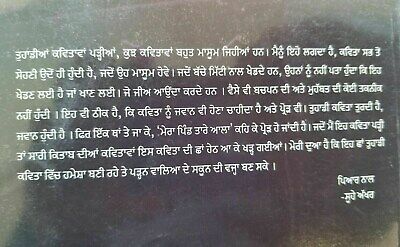 ਤੁਹਾਡੀਆਂ ਕਵਿਤਾਵਾਂ ਪੜ੍ਹੀਆਂ, ਕੁਝ ਕਵਿਤਾਵਾਂ ਬਹੁਤ ਮਾਸੂਮ ਜਿਹੀਆਂ ਹਨ। ਮੈਨੂੰ ਇਹੋ ਲਗਦਾ ਹੈ, ਕਵਿਤਾ ਸਭ ਤੋਂ
ਸੋਹਣੀ ਉਦੋਂ ਹੀ ਹੁੰਦੀ ਹੈ, ਜਦੋਂ ਉਹ ਮਾਸੂਮ ਹੋਵੇ। ਜਦੋਂ ਬੱਚੇ ਮਿੱਟੀ ਨਾਲ ਖੇਡਦੇ ਹਨ, ਉਹਨਾਂ ਨੂੰ ਨਹੀਂ ਪਤਾ ਹੁੰਦਾ ਕਿ ਇਹ
ਖੇਡਣ ਲਈ ਹੈ ਜਾਂ ਖਾਣ ਲਈ। ਜੋ ਜੀਅ ਆਉਂਦਾ ਕਰਦੇ ਹਨ । ਵੈਸੇ ਵੀ ਬਚਪਨ ਦੀ ਅਤੇ ਮੁਹੱਬਤ ਦੀ ਕੋਈ ਤਕਨੀਕ
ਨਹੀਂ ਹੁੰਦੀ । ਇਹ ਵੀ ਠੀਕ ਹੈ, ਕਿ ਕਵਿਤਾ ਨੂੰ ਜਵਾਨ ਵੀ ਹੋਣਾ ਚਾਹੀਦਾ ਹੈ ਅਤੇ ਪ੍ਰੌੜ ਵੀ। ਤੁਹਾਡੀ ਕਵਿਤਾ ਤੁਰਦੀ ਹੈ,
ਜਵਾਨ ਹੁੰਦੀ ਹੈ । ਫਿਰ ਇੱਕ ਥਾਂ ਤੇ ਜਾ ਕੇ, 'ਮੇਰਾ ਪਿੰਡ ਤਾਰੇ ਆਲਾ' ਕਹਿ ਕੇ ਪ੍ਰੌੜ ਹੋ ਜਾਂਦੀ ਹੈ। ਜਦੋਂ ਮੈਂ ਇਹ ਕਵਿਤਾ ਪੜ੍ਹੀ
ਤਾਂ ਸਾਰੀ ਕਿਤਾਬ ਦੀਆਂ ਕਵਿਤਾਵਾਂ ਇਸ ਕਵਿਤਾ ਦੀ ਛਾਂ ਹੇਠ ਆ ਕੇ ਖੜ੍ਹ ਗਈਆਂ। ਮੇਰੀ ਦੁਆ ਹੈ ਕਿ ਇਹ ਛਾਂ ਤੁਹਾਡੀ
ਕਵਿਤਾ ਵਿੱਚ ਹਮੇਸ਼ਾ ਬਣੀ ਰਹੇ ਤੇ ਪੜ੍ਹਨ ਵਾਲਿਆ ਦੇ ਸਕੂਨ ਦੀ ਵਜ੍ਹਾ ਬਣ ਸਕੇ ।
ਪਿਆਰ ਨਾਲ
-ਸੂਹੇ ਅੱਖਰ